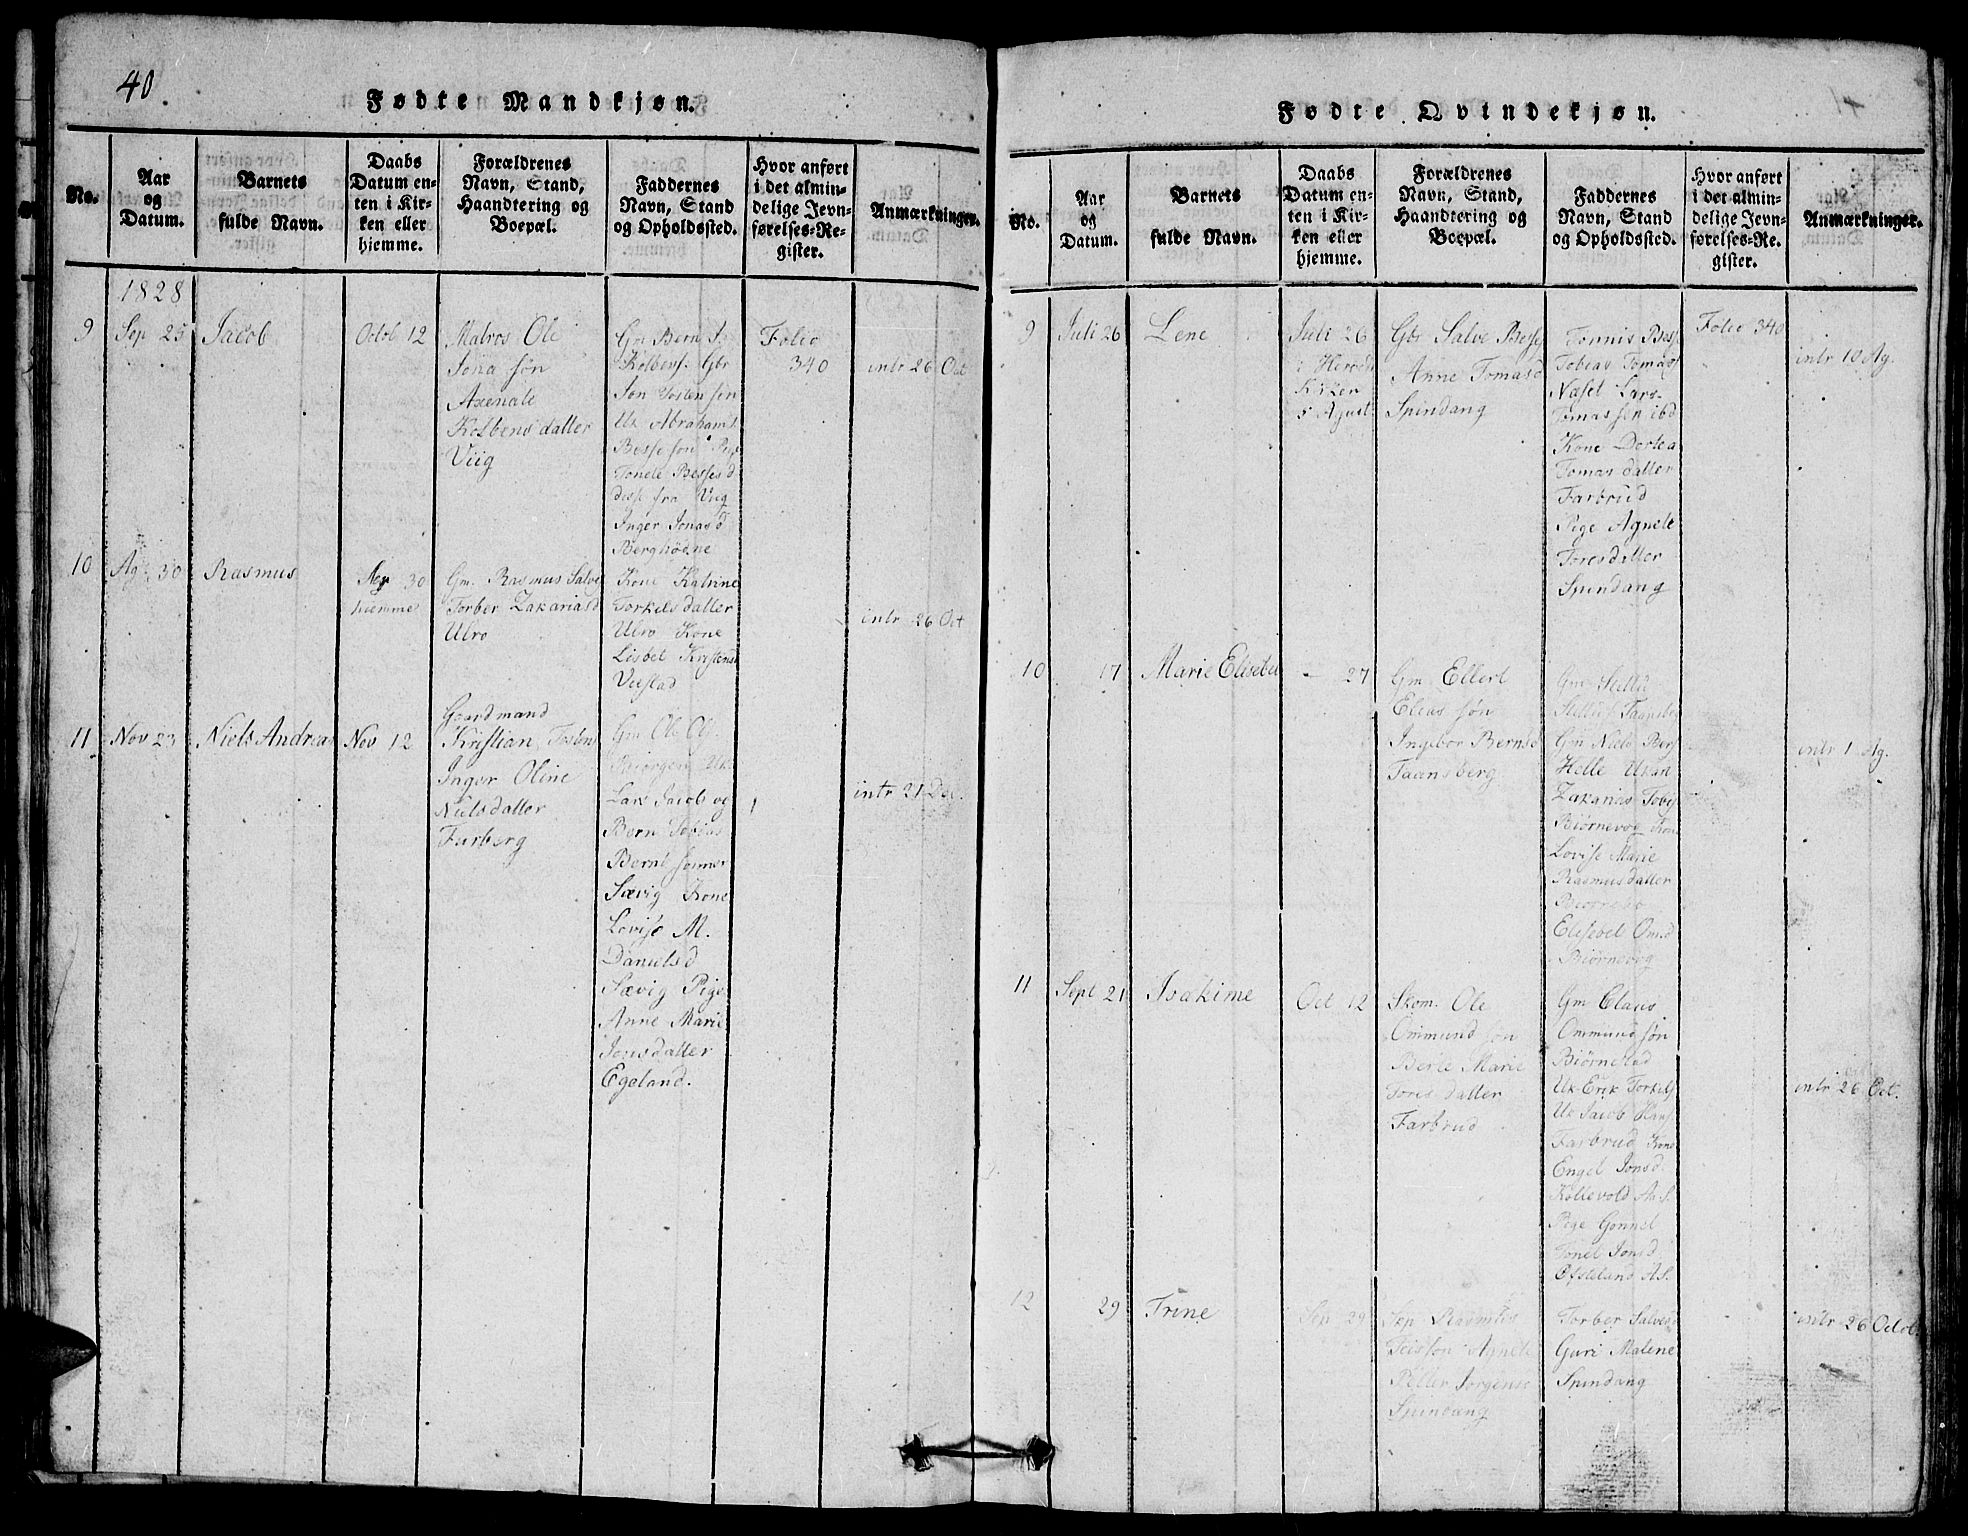 40.
Fødte Mandkjøn.
No.
Aar
og
Datum.
Barnets
fulde Navn.
Daabs
Datum en-
ten i Kir-
ken eller
hjemme.
Forældrenes
Navn, Stand,
Haandtering og
Boepæl.
Faddernes
Navn, Stand
og Opholdssted.
Hvor anført
i det almin-
delige Jevn-
førelses-Re-
gister.
Anmærkninger.
1828
9
Sep 25
Jacob
Octob 12
Matros Ole
Jona søn
Axenale
Kolbens datter
Viig
Gm Bern T.
Kolbens. Gbr
Jon Tosten søn
Uk Abrahams
Besse søn Pige
Tonele Besses d
disse fra Viig
Inger Jonas d
Berghødne
Folio
340
intr 26 Oct
10
Ag 30
Rasmus
Ag 30
hiemme
Gm. Rasmus Salve
Torber Zakarias d
Ulro
Kone Katrine
Torkels datter
Ulro Kone
Lisbet Kristens
Veistad
intr 26 Oct
11
Nov 23
Niels Andreas
Nov 12
Gaardmand
Kristian Tostens
Inger Oline
Niels datter
Furberg
Gm Ole Ol.
Biørgen Uk
Lars Jacob og
Bern Tobias
Bernt sønner
Sævig Kone
Lovise M.
Daniels d
Sævig Pige
Anne Marie
Jons datter
Egeland.
intr 21 Dec.
Fødte Qvindekjøn.
No.
Aar
og
Datum.
Barnets
fulde Navn.
Daabs
Datum en-
ten i Kir-
ken eller
hjemme.
Forældrenes
Navn, Stand,
Haandtering og
Boepæl.
Faddernes
Navn, Stand
og Opholdssted.
Hvor anført
i det almin-
delige Jevn-
førelses-Re-
gister.
Anmærkninger.
9
Juli 26
Lene
Juli 26
i Herreds
Kirken
5 Agust
Gbr Salve Besse
Anne Tomas d
Spindang
Tønnis Bess
Tobias Tomass
Næset Lars
Tomas søn ibd
Kone Dortea
Tomas datter
Farbrud
Pige Agnete
Tores datter
Spindang
Folio 340
intr 10 Ag.
10
17
Marie Elisebet
- 27
Gm Ellert
Elias søn
Ingebor Bernsd
Taansberg
Gm
Taansberg
Gm Niels Bers
Helle Ukari
Zakarias Tobis
Biørnevog Kone
Lovise Marie
Rasmus datter
Elisebet Om.d
Biørnevog
intr 1 Ag.
11
Sept 21
Joakime
Oct 12
Skom. Ole
Ommund søn
Berte Marie
Tores datter
Farbrud
Gm Claus
Ommund søn
Biørnestad
Uk Erik Torkels
Uk Jacob Hans
Farbrud Kone
Engel Jons d.
Kollevold As.
Pige Gonnel
Tonel Jons d
Øfsteland As.
intr 26 Oct.
12
29
Trine
Sep 29
Sep Rasmus
Teisson Agnete
Petter Jørgens d
Spindang
Torber Salves
Guri Malene
Spindang
intr 26 Octob.